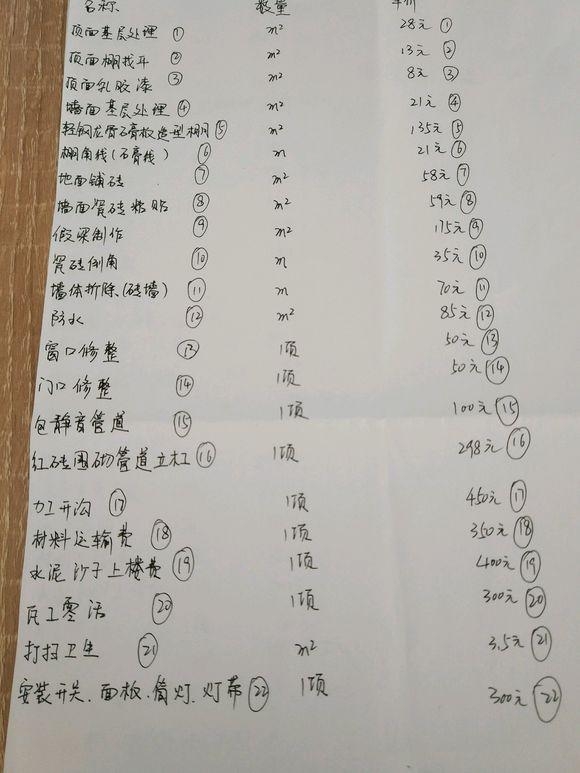 名称 数量 单价
顶面基层处理 ① m² 28元 ①
顶面棚找平 ② m² 13元 ②
顶面乳胶漆 ③ m² 8元 ③
墙面基层处理 ④ m² 21元 ④
轻钢龙骨石膏板造型棚 ⑤ m² 135元 ⑤
棚角线(石膏线) ⑥ m 21元 ⑥
地面铺砖 ⑦ m² 58元 ⑦
墙面瓷砖粘贴 ⑧ m² 59元 ⑧
假梁制作 ⑨ m² 175元 ⑨
瓷砖倒角 ⑩ m 35元 ⑩
墙体拆除(砖墙) ⑪ m 70元 ⑪
防水 ⑫ m² 85元 ⑫
窗口修整 ⑬ 1项 50元 ⑬
门口修整 ⑭ 1项 50元 ⑭
包静音管道 ⑮ 1项 100元 ⑮
红砖围砌管道立杠 ⑯ 1项 298元 ⑯
力工开沟 ⑰ 1项 450元 ⑰
材料运输费 ⑱ 1项 350元 ⑱
水泥沙子上楼费 ⑲ 1项 400元 ⑲
瓦工零活 ⑳ 1项 300元 ⑳
打扫卫生 ㉑ m² 3.5元 ㉑
安装开关、面板、筒灯、灯带 ㉒ 1项 300元 ㉒